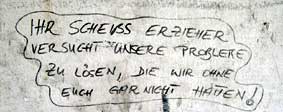 IHR SCHEUSS ERZIEHER
VERSUCHT UNSERE PROBLEME
ZU LÖSEN, DIE WIR OHNE
EUCH GAR NICHT HÄTTEN!